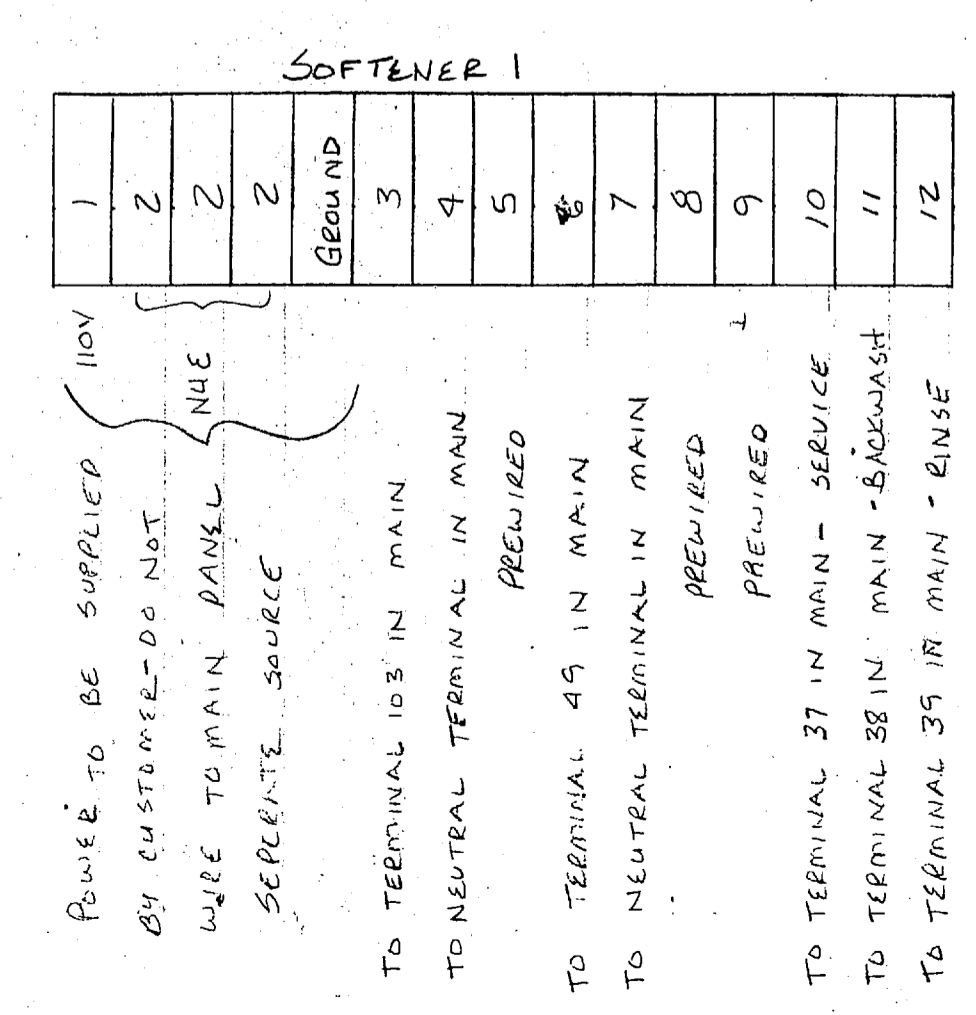 SOFTENER 1
1
2
2
2
GROUND
3
4
5
6
7
8
9
10
11
12
110V
NUE
POWER TO BE SUPPLIED
BY CUSTOMER-DO NOT
WIRE TO MAIN PANEL
SEPERATE SOURCE
TO TERMINAL 103 IN MAIN
TO NEUTRAL TERMINAL IN MAIN
PREWIRED
TO TERMINAL 49 IN MAIN
TO NEUTRAL TERMINAL IN MAIN
PREWIRED
PREWIRED
TO TERMINAL 37 IN MAIN - SERVICE
TO TERMINAL 38 IN MAIN - BACKWASH
TO TERMINAL 39 IN MAIN - RINSE